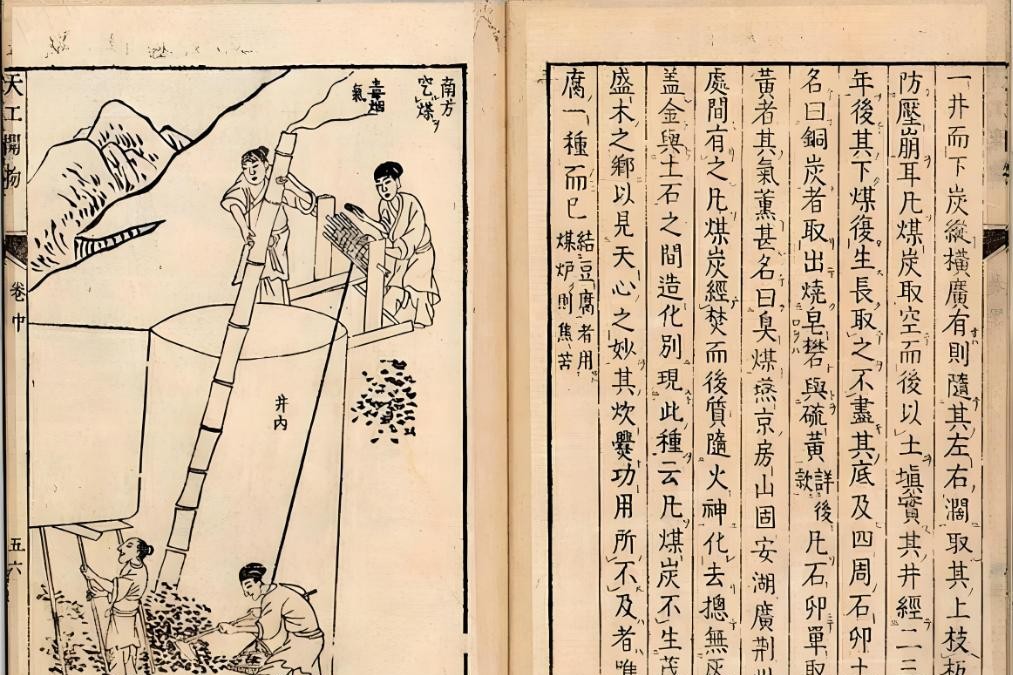 一井而下炭縱橫廣有則隨其左右濶取其上枝板
防壓崩耳凡煤炭取空而後以土塡實其井經二三
年後其下煤復生長取之不盡其底及四周石卵土
名曰銅炭者取出燒皂礬與硫黃詳後款凡石卵單取
黃者其氣薰甚名曰臭煤燕京房山固安湖廣荆州
處間有之凡煤炭經焚而後質隨火神化去摠無灰
盖金與土石之間造化別現此種云凡煤炭不生茂
盛木之鄕以見天心之妙其炊爨功用所不及者唯
腐一種而已結豆腐者用
煤炉則焦苦
南方
煤
毒烟
氣
井內
天工開物
卷中
五六